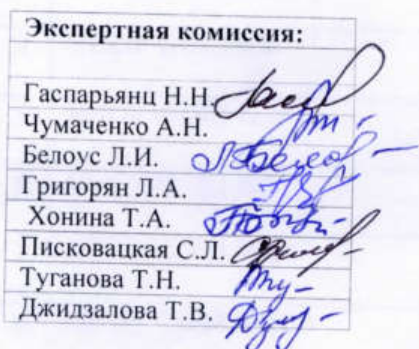 Экспертная комиссия:
Гаспарьянц Н.Н.
Чумаченко А.Н.
Белоус Л.И.
Григорян Л.А.
Хонина Т.А.
Писковацкая С.Л.
Туганова Т.Н.
Джидзалова Т.В.